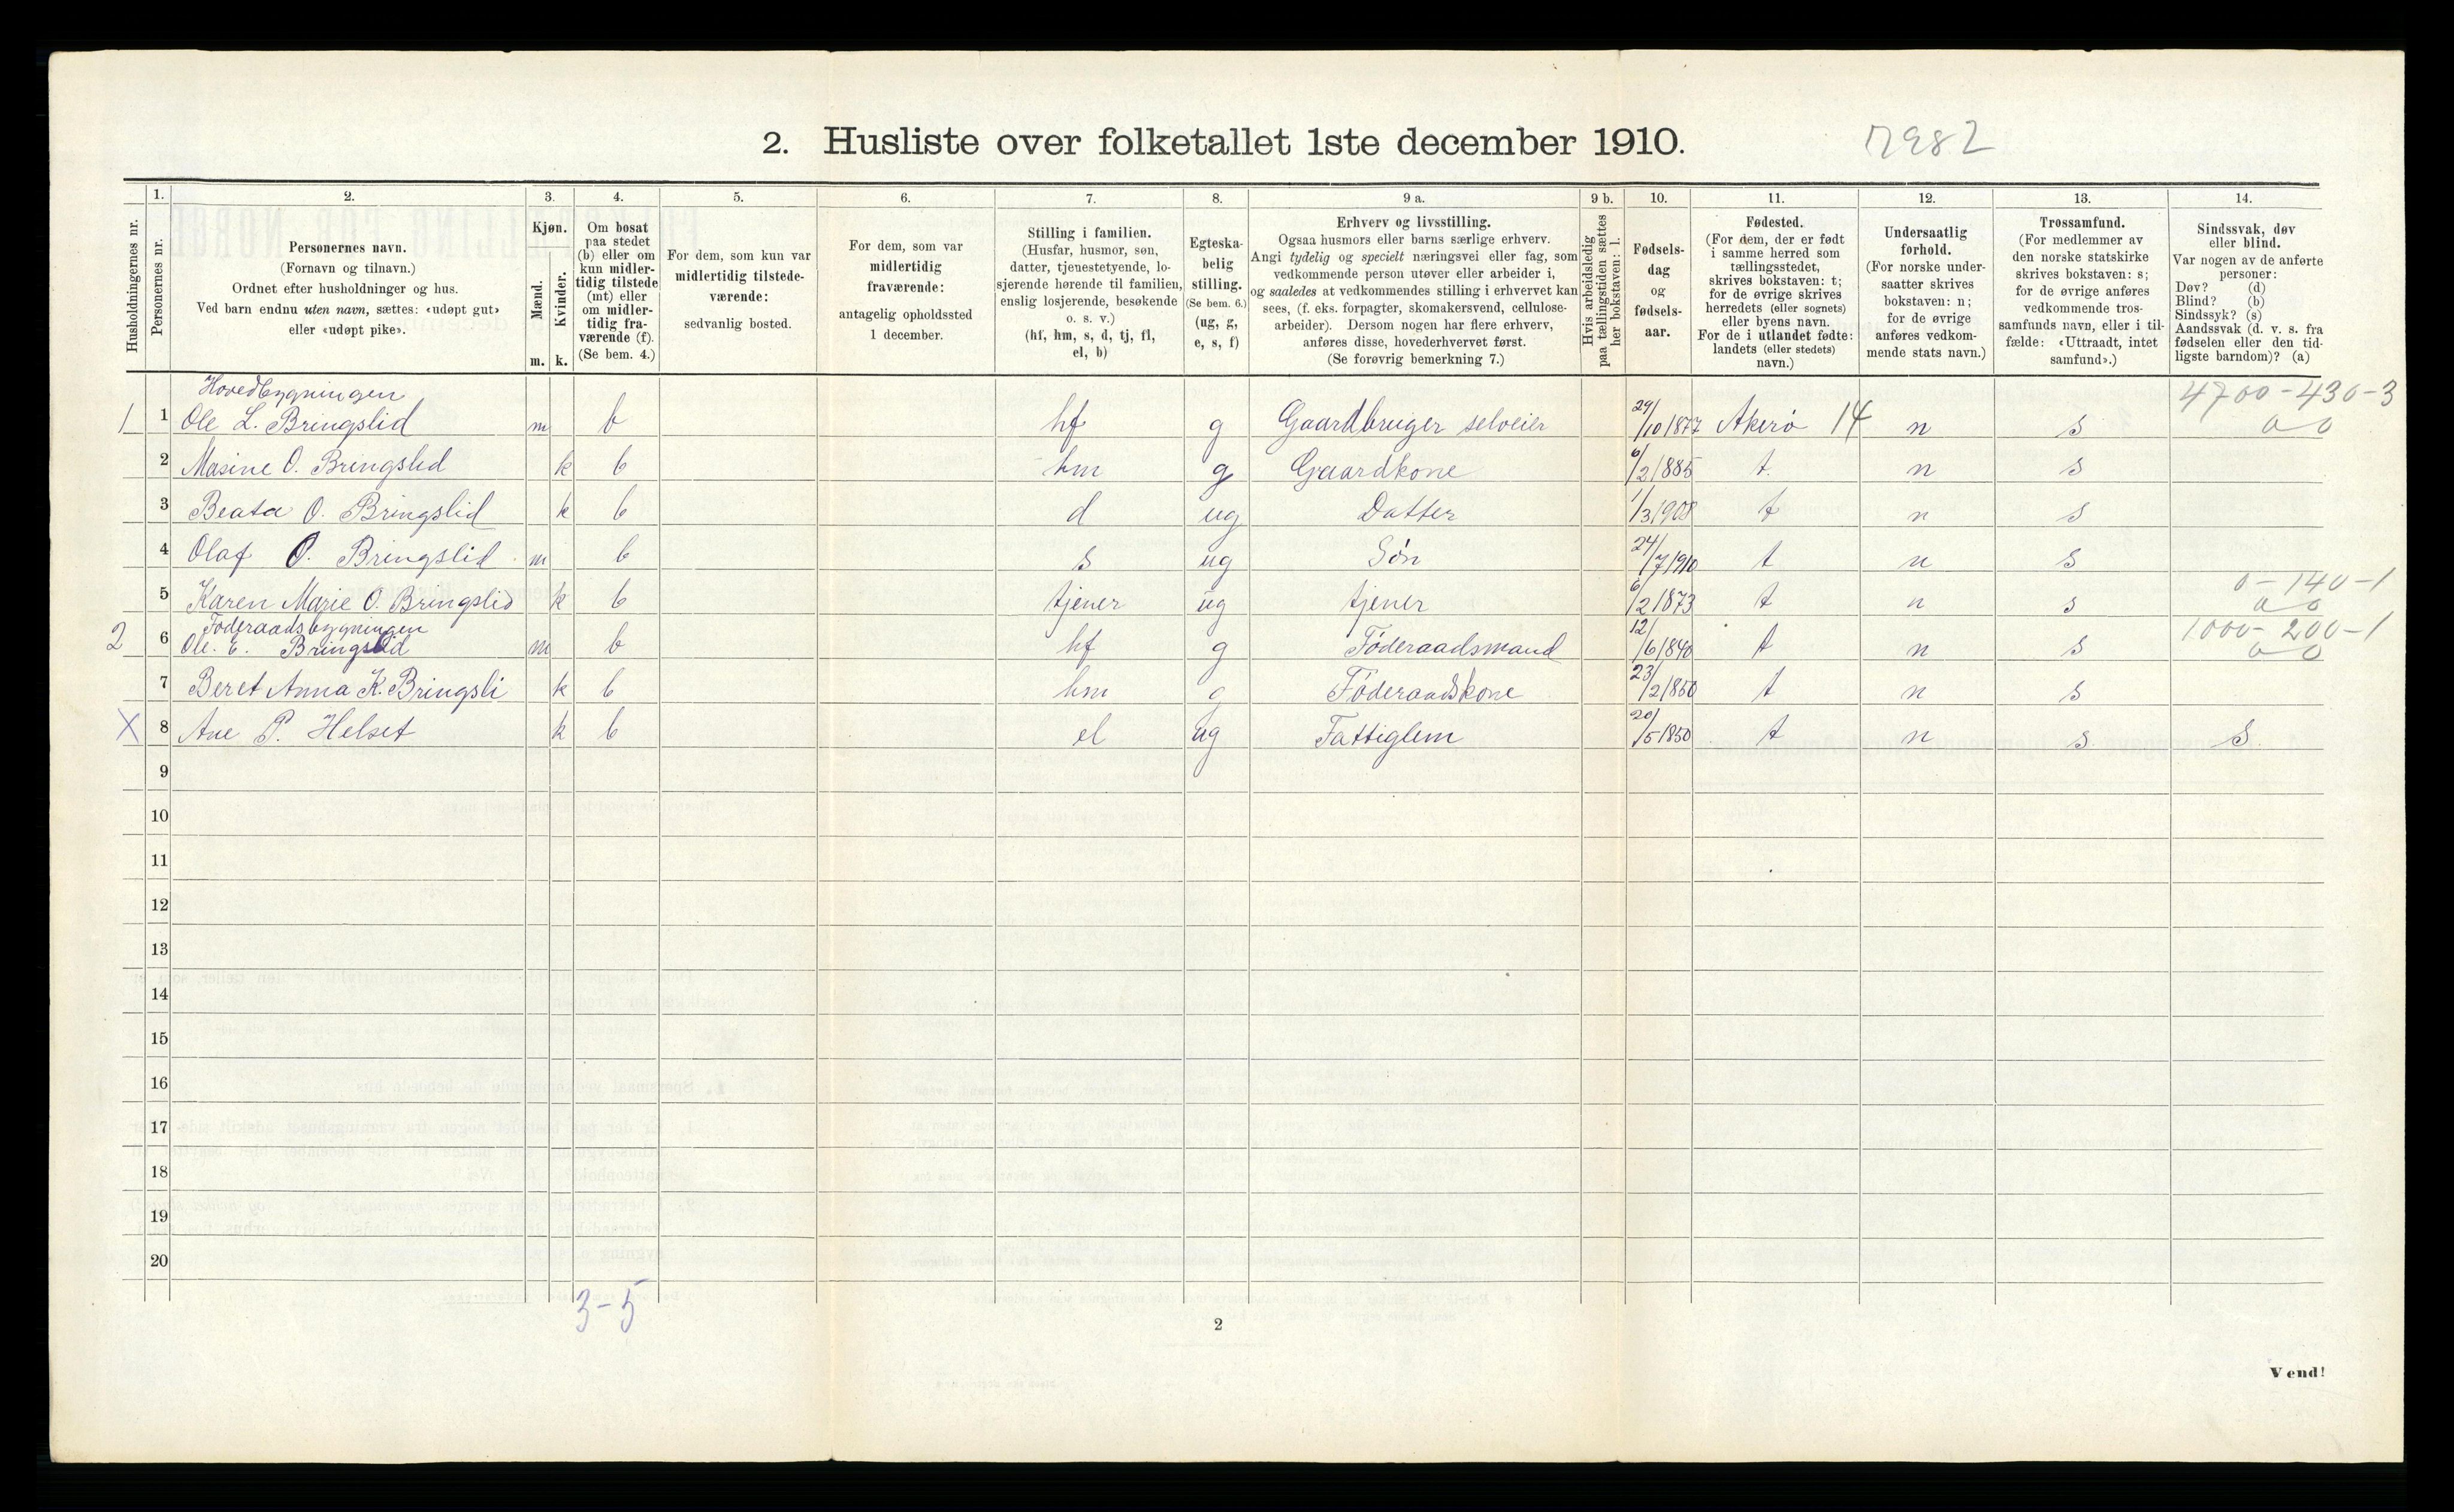 2. Husliste over folketallet 1ste december 1910.
7982
Husholdningernes nr.
1.
Personernes nr.
2.
Personernes navn.
(Fornavn og tilnavn.)
Ordnet efter husholdninger og hus.
Ved barn endnu uten navn, sættes: «udøpt gut»
eller «udøpt pike».
3.
Kjøn.
Mænd.
Kvinder.
m. k.
4.
Om bosat
paa stedet
(b) eller om
kun midler-
tidig tilstede
(mt) eller
om midler-
tidig fra-
værende (f).
(Se bem. 4.)
5.
For dem, som kun var
midlertidig tilstede-
værende:
sedvanlig bosted.
6.
For dem, som var
midlertidig
fraværende:
antagelig opholdssted
1 december.
7.
Stilling i familien.
(Husfar, husmor, søn,
datter, tjenestetyende, lo-
sjerende hørende til familien,
enslig losjerende, besøkende
o. s. v.)
(hf, hm, s, d, tj, fl,
el, b)
8.
Egteska-
belig
stilling.
(Se bem. 6.)
(ug, g,
e, s, f)
9 a.
Erhverv og livsstilling.
Ogsaa husmors eller barns særlige erhverv.
Angi tydelig og specielt næringsvei eller fag, som
vedkommende person utøver eller arbeider i,
og saaledes at vedkommendes stilling i erhvervet kan
sees, (f. eks. forpagter, skomakersvend, cellulose-
arbeider). Dersom nogen har flere erhverv,
anføres disse, hovederhvervet først.
(Se forøvrig bemerkning 7.)
9 b.
Hvis arbeidsledig
paa tællingstiden sættes
her bokstaven: l.
10.
Fødsels-
dag
og
fødsels-
aar.
11.
Fødested.
(For dem, der er født
i samme herred som
tællingsstedet,
skrives bokstaven: t;
for de øvrige skrives
herredets (eller sognets)
eller byens navn.
For de i utlandet fødte:
landets (eller stedets)
navn.)
12.
Undersaatlig
forhold.
(For norske under-
saatter skrives
bokstaven: n;
for de øvrige
anføres vedkom-
mende stats navn.)
13.
Trossamfund.
(For medlemmer av
den norske statskirke
skrives bokstaven: s;
for de øvrige anføres
vedkommende tros-
samfunds navn, eller i til-
fælde: «Uttraadt, intet
samfund».)
14.
Sindssvak, døv
eller blind.
Var nogen av de anførte
personer:
Døv? (d)
Blind? (b)
Sindssyk? (s)
Aandssvak (d. v. s. fra
fødselen eller den tid-
ligste barndom)? (a)
Hovedbygningen 4700-430-3
1 1 Ole L. Bringslid m b hf g Gaardbruger selveier 29/10 1877 Akerø 14 n s 0 0
2 Masine O. Bringslid k b hm g Gaardkone 6/2 1885 t. n s
3 Beata O. Bringslid k b d ug Datter 1/3 1908 t n s
4 Olaf O. Bringslid m b s ug Søn 24/7 1910 t n s
0-140-1
5 Karen Marie O. Bringslid k b tjener ug tjener 6/2 1873 t n s 0 0
Føderaadsbygningen 1000-200-1
2 6 Ole. E. Bringslid m b hf g Føderaadsmand 12/6 1840 t n s 0 0
7 Beret Anna K. Bringsli k b hm g Føderaadskone 23/2 1850 t n s
X 8 Ane P. Helset k b el ug Fattiglem 20/5 1850 t n s S.
9
10
11
12
13
14
15
16
17
18
19
20
3-5
2
Vend!